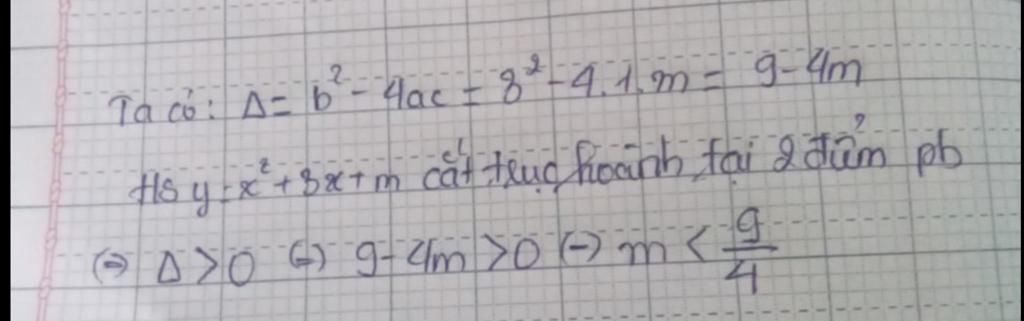 Ta có: Δ = b² - 4ac = 3² - 4.1.m = 9 - 4m
Hs y = x² + 3x + m cắt trục hoành tại 2 điểm pb
⇔ Δ > 0 ⇔ 9 - 4m > 0 ⇔ m < 9/4